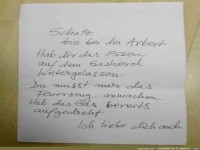 Schatz
bin bei der Arbeit
Hab dir das Essen
auf dem Gasherd
hintergelassen
Du musst nur das
Feuerzeug anmachen
Hab das Gas bereits
aufgedreht
Ich liebe dich auch